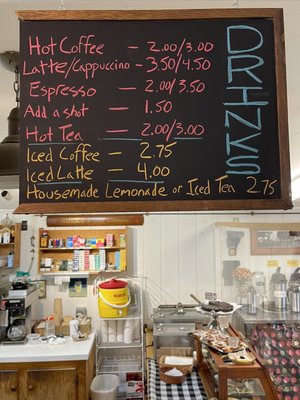 Hot Coffee — 2.00/3.00
Latte/Cappuccino - 3.50/4.50
Espresso — 2.00/3.50
Add a shot — 1.50
Hot Tea — 2.00/3.00
Iced Coffee -- 2.75
Iced Latte — 4.00
Housemade Lemonade or Iced Tea 2.75
DRINKS